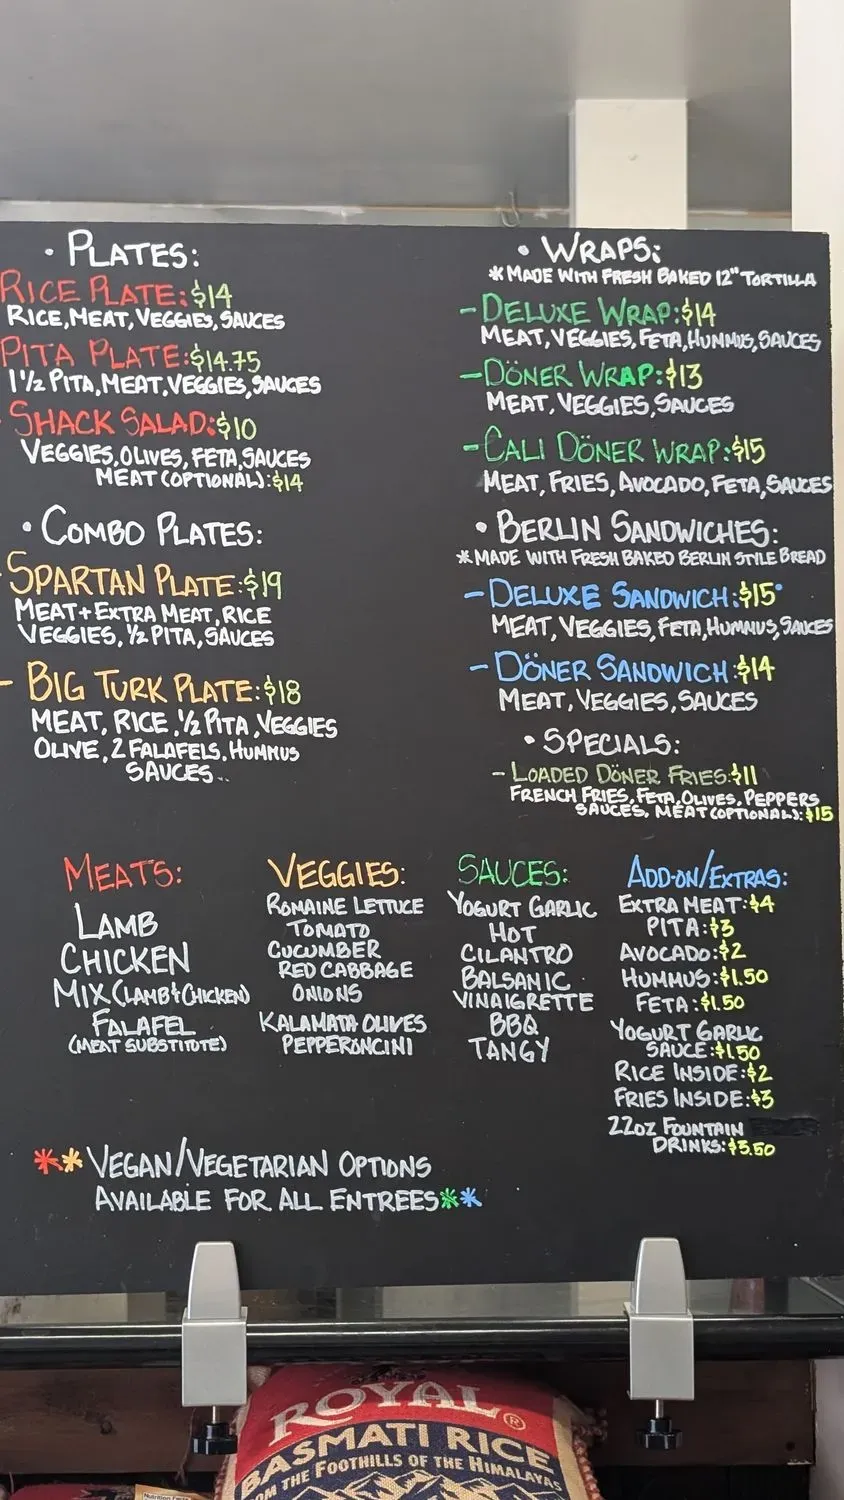 • PLATES:
RICE PLATE:$14
RICE,MEAT,VEGGIES,SAUCES
PITA PLATE:$14.75
1½ PITA,MEAT,VEGGIES,SAUCES
SHACK SALAD:$10
VEGGIES,OLIVES,FETA,SAUCES
MEAT (OPTIONAL):$14
• COMBO PLATES:
- SPARTAN PLATE:$19
MEAT+EXTRA MEAT,RICE
VEGGIES,½ PITA,SAUCES
- BIG TURK PLATE:$18
MEAT,RICE,½ PITA,VEGGIES
OLIVE,2 FALAFELS,HUMMUS
SAUCES..
• WRAPS:
*MADE WITH FRESH BAKED 12" TORTILLA
-DELUXE WRAP:$14
MEAT,VEGGIES,FETA,HUMMUS,SAUCES
-DÖNER WRAP:$13
MEAT,VEGGIES,SAUCES
-CALI DÖNER WRAP:$15
MEAT,FRIES,AVOCADO,FETA,SAUCES
• BERLIN SANDWICHES:
*MADE WITH FRESH BAKED BERLIN STYLE BREAD
-DELUXE SANDWICH:$15
MEAT,VEGGIES,FETA,HUMMUS,SAUCES
-DÖNER SANDWICH:$14
MEAT,VEGGIES,SAUCES
• SPECIALS:
-LOADED DÖNER FRIES:$11
FRENCH FRIES,FETA,OLIVES,PEPPERS
SAUCES, MEAT (OPTIONAL):$15
MEATS:
LAMB
CHICKEN
MIX (LAMB & CHICKEN)
FALAFEL
(MEAT SUBSTITUTE)
VEGGIES:
ROMAINE LETTUCE
TOMATO
CUCUMBER
RED CABBAGE
ONIONS
KALAMATA OLIVES
PEPPERONCINI
SAUCES:
YOGURT GARLIC
HOT
CILANTRO
BALSANIC
VINAIGRETTE
BBQ
TANGY
ADD-ON/EXTRAS:
EXTRA MEAT:$4
PITA:$3
AVOCADO:$2
HUMMUS:$1.50
FETA:$1.50
YOGURT GARLIC
SAUCE:$1.50
RICE INSIDE:$2
FRIES INSIDE:$3
22OZ FOUNTAIN
DRINKS:$3.50
**VEGAN/VEGETARIAN OPTIONS
AVAILABLE FOR ALL ENTREES**
ROYAL®
BASMATI RICE
THE FOOTHILLS OF THE HIMALAYAS
Nutrition Facts